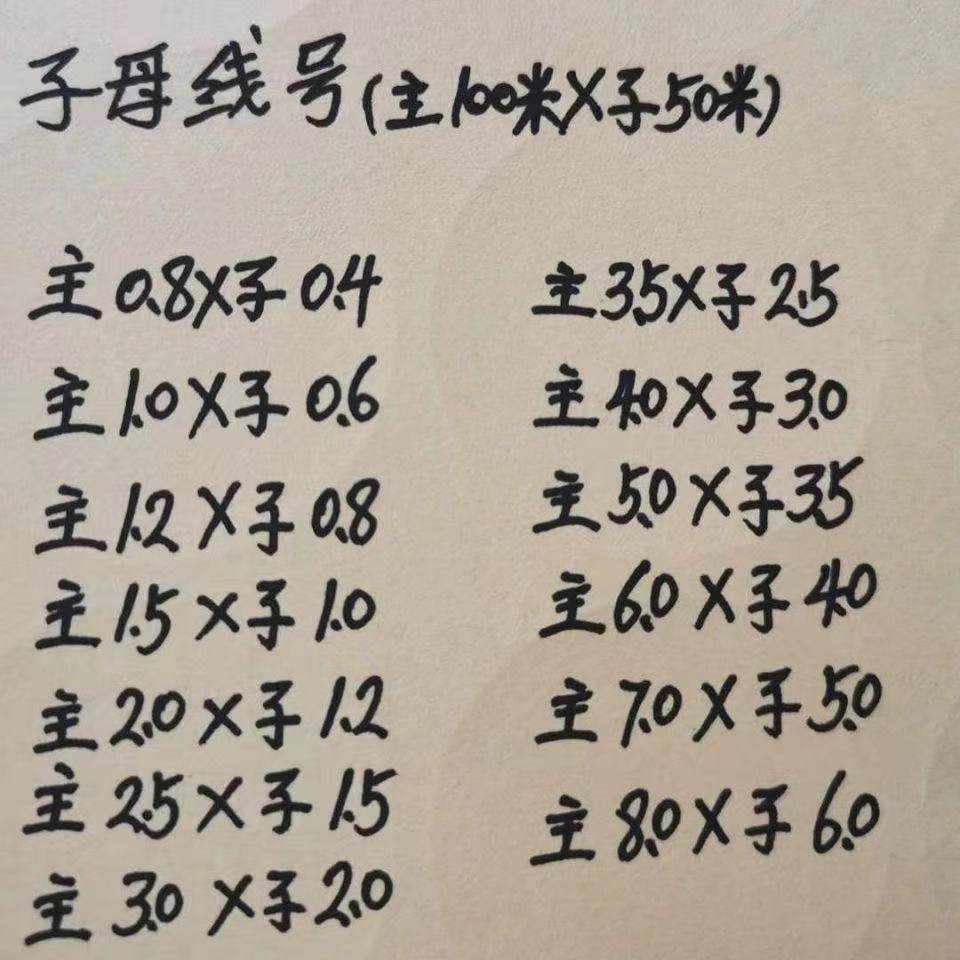 子母线号(主100米X子50米)
主0.8X子0.4
主1.0X子0.6
主1.2X子0.8
主1.5X子1.0
主2.0X子1.2
主2.5X子1.5
主3.0X子2.0
主3.5X子2.5
主4.0X子3.0
主5.0X子3.5
主6.0X子4.0
主7.0X子5.0
主8.0X子6.0